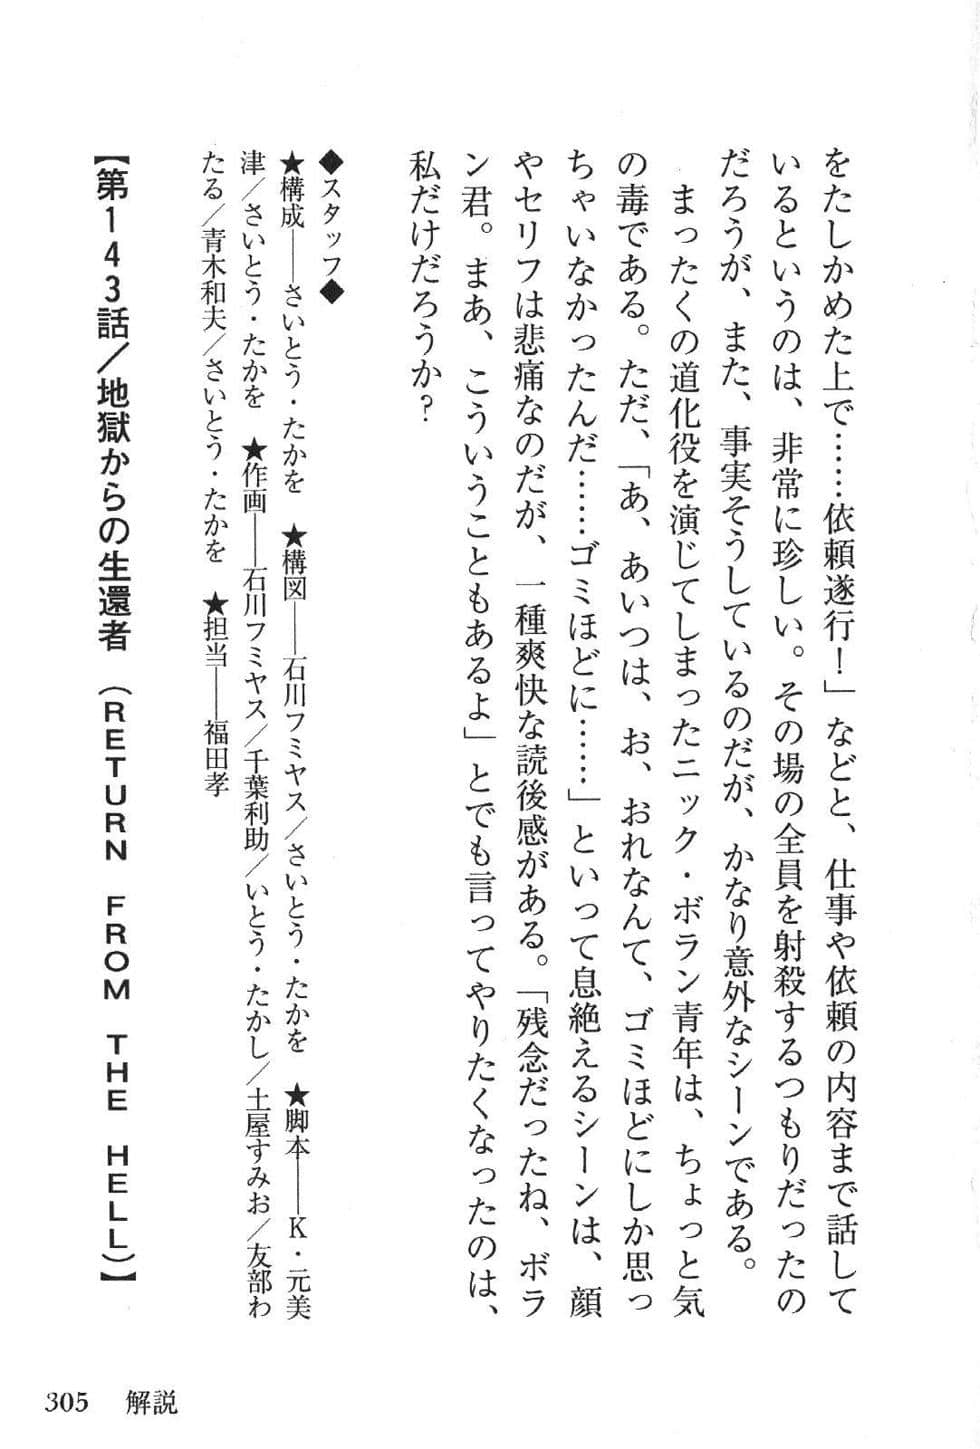 をたしかめた上で……依頼遂行！」などと、仕事や依頼の内容まで話して
いるというのは、非常に珍しい。その場の全員を射殺するつもりだったの
だろうが、また、事実そうしているのだが、かなり意外なシーンである。
　まったくの道化役を演じてしまったニック・ボラン青年は、ちょっと気
の毒である。ただ、「あ、あいつは、お、おれなんて、ゴミほどにしか思っ
ちゃいなかったんだ……ゴミほどに……」といって息絶えるシーンは、顔
やセリフは悲痛なのだが、一種爽快な読後感がある。「残念だったね、ボラ
ン君。まあ、こういうこともあるよ」とでも言ってやりたくなったのは、
私だけだろうか？
◆スタッフ◆
★構成――さいとう・たかを　★構図――石川フミヤス／さいとう・たかを　★脚本――K・元美
津／さいとう・たかを　★作画――石川フミヤス／千葉利助／いとう・たかし／土屋すみお／友部わ
たる／青木和夫／さいとう・たかを　★担当――福田孝
【第143話／地獄からの生還者（RETURN FROM THE HELL）】
305　解説